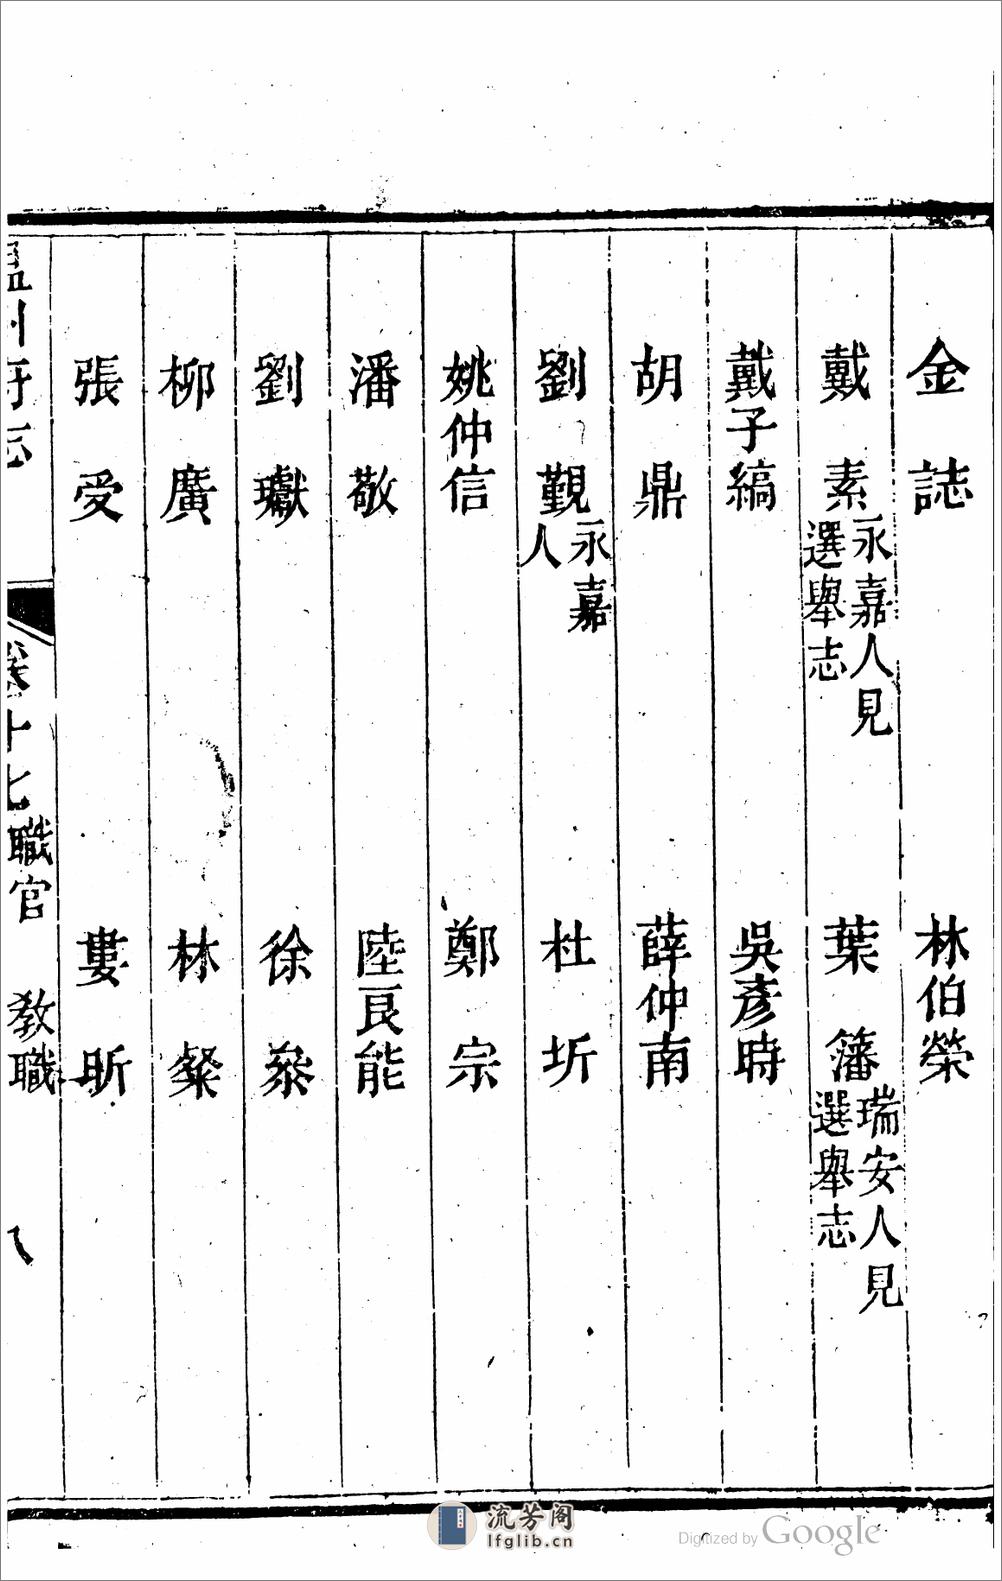 金誌　林伯榮
戴素永嘉人見選舉志　葉籓瑞安人見選舉志
戴子縞　吳彥時
胡鼎　薛仲南
劉覲永嘉人　杜圻
姚仲信　鄭宗
潘敬　陸良能
劉瓛　徐叅
柳廣　林粲
張受　婁昕
溫州府志　卷十七職官　教職　八
流芳阁
lfglib.cn
Digitized by Google